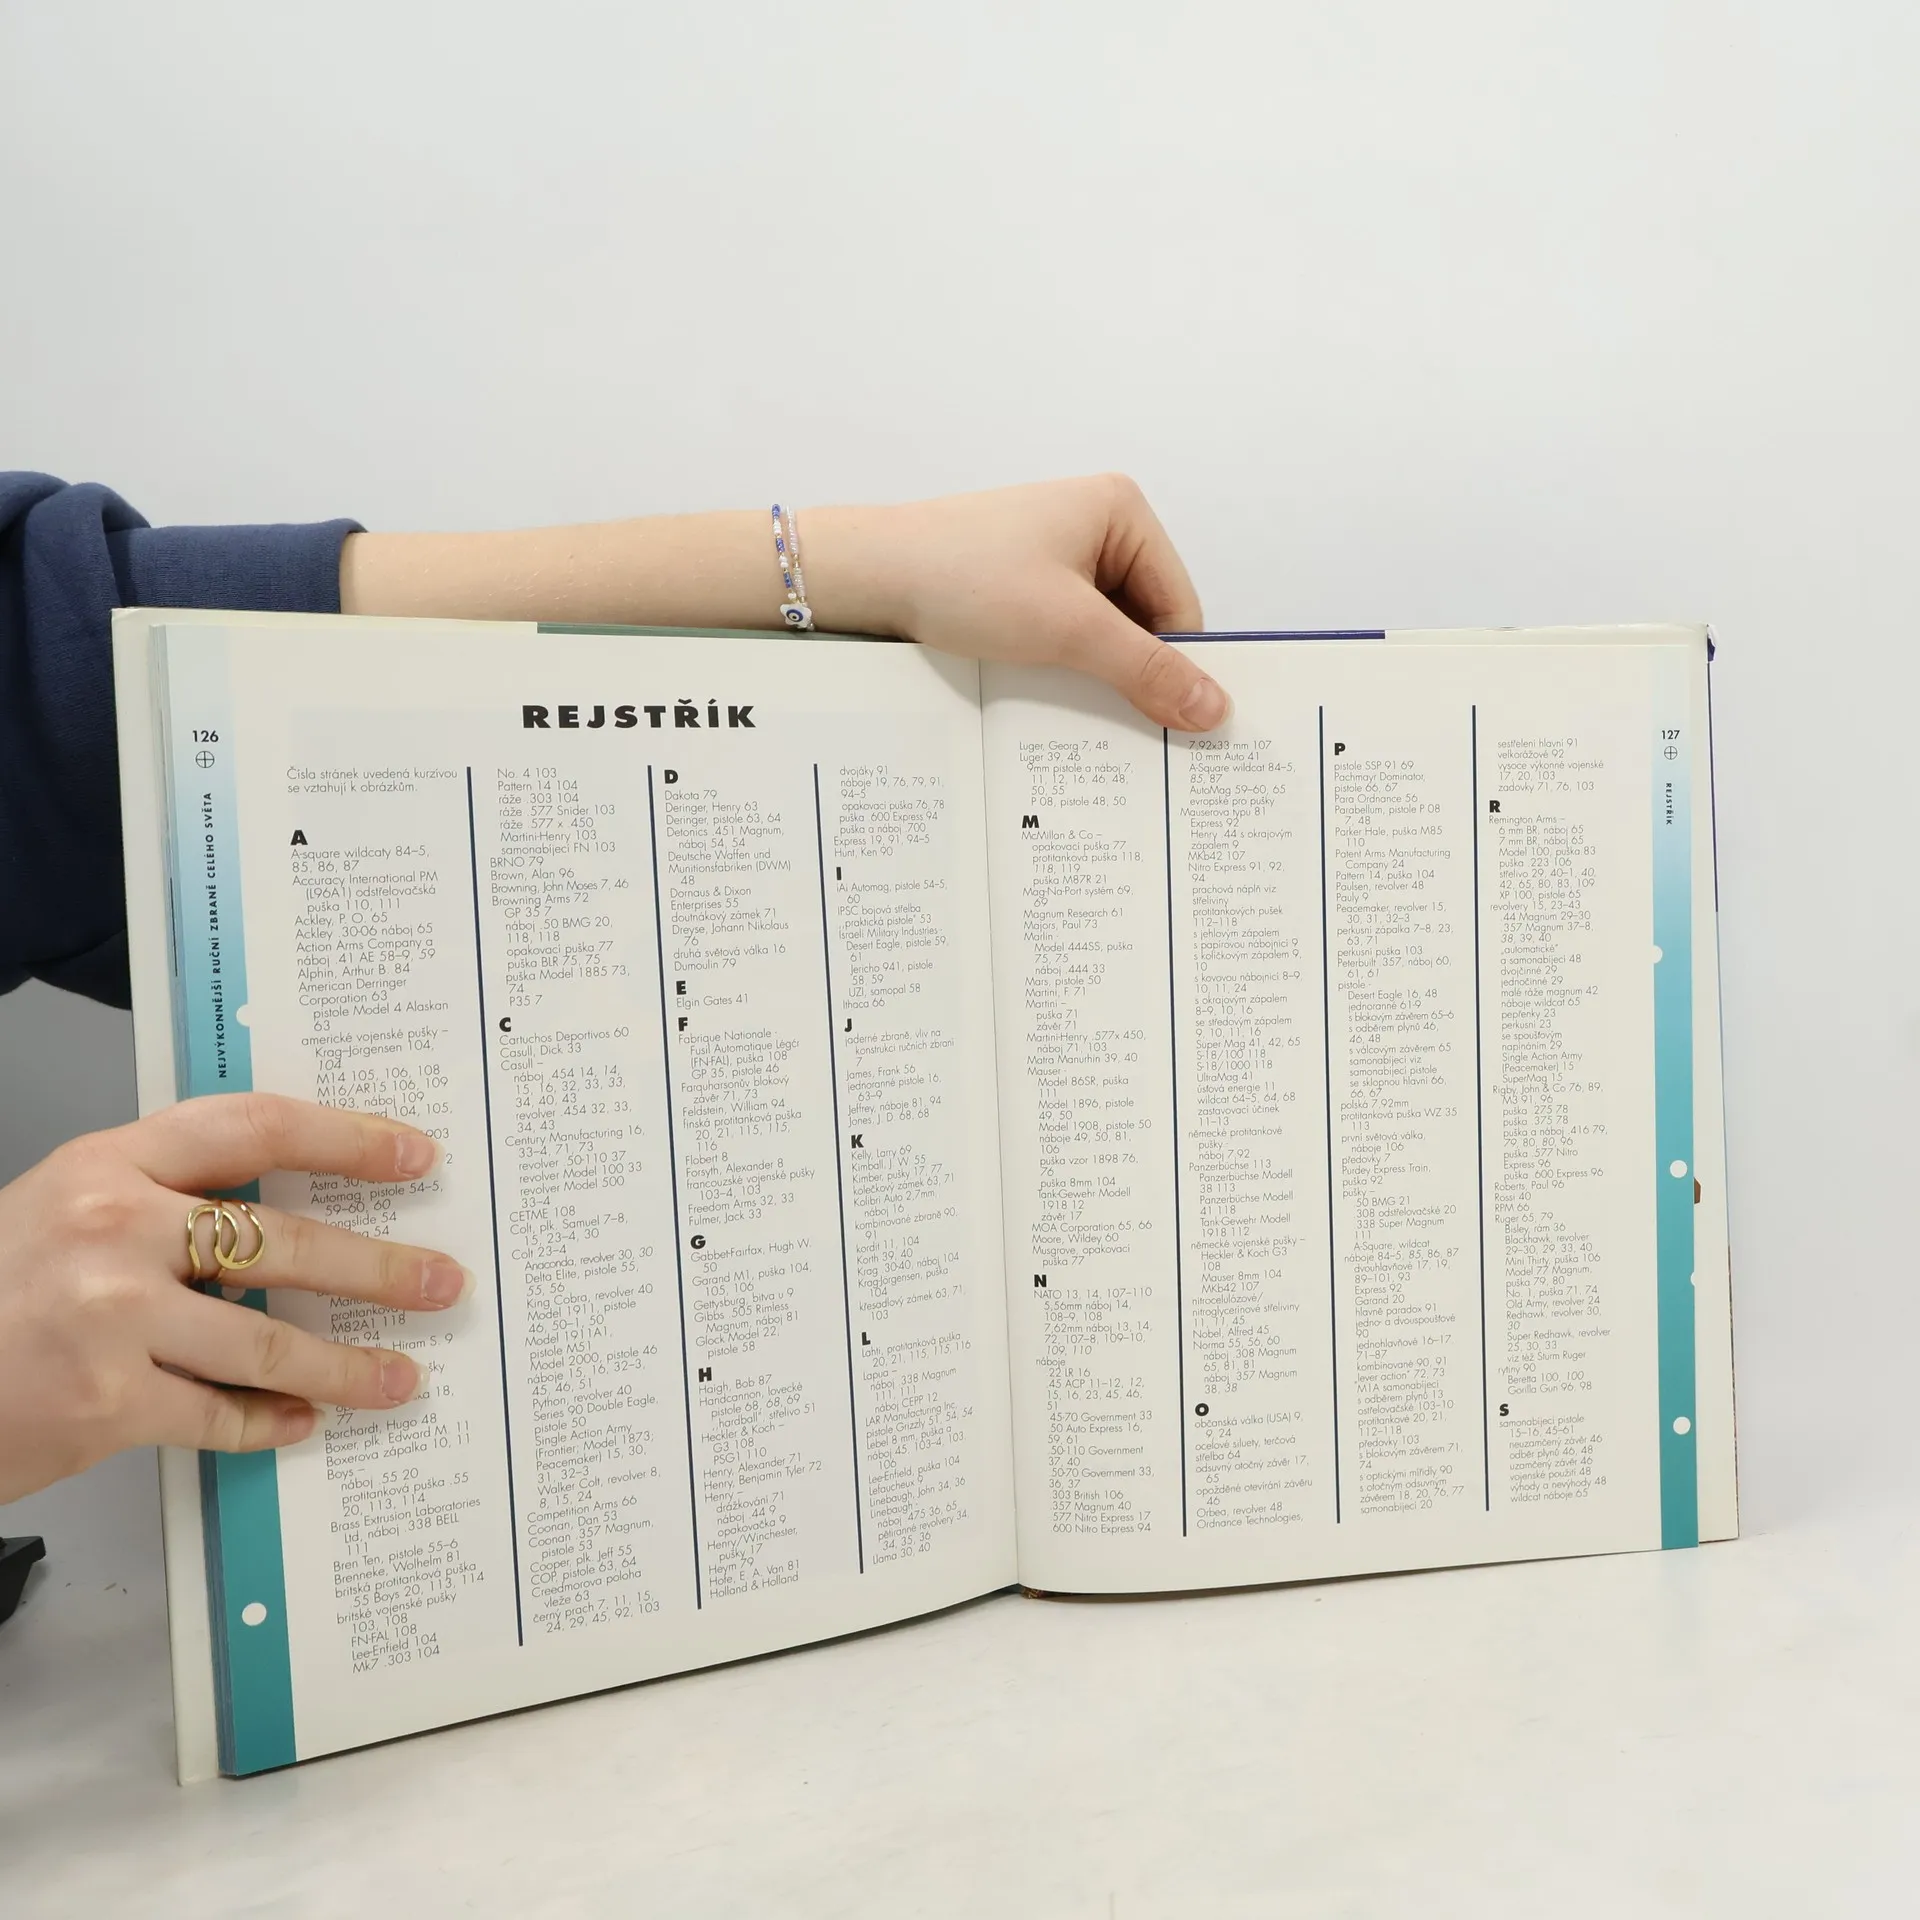 126
NEJVÝKONNĚJŠÍ RUČNÍ ZBRANĚ CELÉHO SVĚTA
REJSTŘÍK
Čísla stránek uvedená kurzivou
se vztahují k obrázkům.
A
A-square wildcaty 84–5,
85, 86, 87
Accuracy International PM
(L96A1) odstřelovačská
puška 110, 111
Ackley, P. O. 65
Ackley .30-06 náboj 65
Action Arms Company a
náboj .41 AE 58–9, 59
Alphin, Arthur B. 84
American Derringer
Corporation 63
pistole Model 4 Alaskan
63
americké vojenské pušky –
Krag–Jörgensen 104,
104
M14 105, 106, 108
M16/AR15 106, 109
M193, náboj 109
104, 105,
Astra
Automag, pistole 54–5,
59–60, 60
Longslide 54
54
protitanková
M82A1 118
Jim 94
Hiram S. 9
18,
77
Borchardt, Hugo 48
Boxer, plk. Edward M. 11
Boxerova zápalka 10, 11
Boys –
náboj .55 20
protitanková puška .55
20, 113, 114
Brass Extrusion Laboratories
Ltd, náboj .338 BELL
111
Bren Ten, pistole 55–6
Brenneke, Wolhelm 81
britská protitanková puška
.55 Boys 20, 113, 114
britské vojenské pušky
103, 108
FN-FAL 108
Lee-Enfield 104
Mk7 .303 104
No. 4 103
Pattern 14 104
ráže .303 104
ráže .577 Snider 103
ráže .577 x .450
Martini-Henry 103
samonabíjecí FN 103
BRNO 79
Brown, Alan 96
Browning, John Moses 7, 46
Browning Arms 72
GP 35 7
náboj .50 BMG 20,
118, 118
opakovací puška 77
puška BLR 75, 75
puška Model 1885 73,
74
P35 7
C
Cartuchos Deportivos 60
Casull, Dick 33
Casull –
náboj .454 14, 14,
15, 16, 32, 33, 33,
34, 40, 43
revolver .454 32, 33,
34, 43
Century Manufacturing 16,
33–4, 71, 73
revolver .50-110 37
revolver Model 100 33
revolver Model 500
33–4
CETME 108
Colt, plk. Samuel 7–8,
15, 23–4, 30
Colt 23–4
Anaconda, revolver 30, 30
Delta Elite, pistole 55,
55, 56
King Cobra, revolver 40
Model 1911, pistole
46, 50–1, 50
Model 1911A1,
pistole M51
Model 2000, pistole 46
náboje 15, 16, 32–3,
45, 46, 51
Python, revolver 40
Series 90 Double Eagle,
pistole 50
Single Action Army
(Frontier; Model 1873;
Peacemaker) 15, 30,
31, 32–3
Walker Colt, revolver 8,
8, 15, 24
Competition Arms 66
Coonan, Dan 53
Coonan .357 Magnum,
pistole 53
Cooper, plk. Jeff 55
COP, pistole 63, 64
Creedmorova poloha
vleže 63
černý prach 7, 11, 15,
24, 29, 45, 92, 103
D
Dakota 79
Deringer, Henry 63
Deringer, pistole 63, 64
Detonics .451 Magnum,
náboj 54, 54
Deutsche Waffen und
Munitionsfabriken (DWM)
48
Dornaus & Dixon
Enterprises 55
doutnákový zámek 71
Dreyse, Johann Nikolaus
76
druhá světová válka 16
Dumoulin 79
E
Elgin Gates 41
F
Fabrique Nationale -
Fusil Automatique Légér
(FN-FAL), puška 108
GP 35, pistole 46
Farquharsonův blokový
závěr 71, 73
Feldstein, William 94
finská protitanková puška
20, 21, 115, 115,
116
Flobert 8
Forsyth, Alexander 8
francouzské vojenské pušky
103–4, 103
Freedom Arms 32, 33
Fulmer, Jack 33
G
Gabbet-Fairfax, Hugh W.
50
Garand M1, puška 104,
105, 106
Gettysburg, bitva u 9
Gibbs .505 Rimless
Magnum, náboj 81
Glock Model 22,
pistole 58
H
Haigh, Bob 87
Handcannon, lovecké
pistole 68, 68, 69
„hardball“, střelivo 51
Heckler & Koch –
G3 108
PSG1 110
Henry, Alexander 71
Henry, Benjamin Tyler 72
Henry –
drážkování 71
náboj .44 9
opakovačka 9
Henry/Winchester,
pušky 17
Heym 79
Hofe, E. A. Van 81
Holland & Holland
dvojáky 91
náboje 19, 76, 79, 91,
94–5
opakovací puška 76, 78
puška .600 Express 94
puška a náboj .700
Express 19, 91, 94–5
Hunt, Ken 90
I
IAi Automag, pistole 54–5,
60
IPSC bojová střelba
„praktická pistole“ 53
Israeli Military Industries -
Desert Eagle, pistole 59,
61
Jericho 941, pistole
58, 59
UZI, samopal 58
Ithaca 66
J
jaderné zbraně, vliv na
konstrukci ručních zbraní
7
James, Frank 56
jednoranné pistole 16,
63–9
Jeffrey, náboje 81, 94
Jones, J. D. 68, 68
K
Kelly, Larry 69
Kimball, J. W. 55
Kimber, pušky 17, 77
kolečkový zámek 63, 71
Kolibri Auto 2,7mm,
náboj 16
kombinované zbraně 90,
91
kordit 11, 104
Korth 39, 40
Krag .30-40, náboj 104
Krag-Jörgensen, puška
104
křesadlový zámek 63, 71,
103
L
Lahti, protitanková puška
20, 21, 115, 115, 116
Lapua –
náboj .338 Magnum
111, 111
náboj CEPP 12
LAR Manufacturing Inc.
pistole Grizzly 51, 54, 54
Lebel 8 mm, puška a
náboj 45, 103–4, 103,
106
Lee-Enfield, puška 104
Lefaucheux 9
Linebaugh, John 34, 36
Linebaugh -
náboj .475 36, 65
pětiranné revolvery 34,
34, 35, 36
Llama 30, 40
Luger, Georg 7, 48
Luger 39, 46
9mm pistole a náboj 7,
11, 12, 16, 46, 48,
50, 55
P 08, pistole 48, 50
M
McMillan & Co –
opakovací puška 77
protitanková puška 118,
118, 119
puška M87R 21
Mag-Na-Port systém 69,
69
Magnum Research 61
Majors, Paul 73
Marlin -
Model 444SS, puška
75, 75
náboj .444 33
Mars, pistole 50
Martini, F. 71
Martini –
puška 71
závěr 71
Martini-Henry .577x 450,
náboj 71, 103
Matra Manurhin 39, 40
Mauser -
Model 86SR, puška
111
Model 1896, pistole
49, 50
Model 1908, pistole 50
náboje 49, 50, 81,
106
puška vzor 1898 76,
76
puška 8mm 104
Tank-Gewehr Modell
1918 12
závěr 17
MOA Corporation 65, 66
Moore, Wildey 60
Musgrove, opakovací
puška 77
N
NATO 13, 14, 107–110
5,56mm náboj 14,
108–9, 108
7,62mm náboj 13, 14,
72, 107–8, 109–10,
109, 110
náboje
22 LR 16
.45 ACP 11–12, 12,
15, 16, 23, 45, 46,
51
45-70 Government 33
50 Auto Express 16,
59, 61
50-110 Government
37, 40
50-70 Government 33,
36, 37
303 British 106
357 Magnum 40
577 Nitro Express 17
600 Nitro Express 94
7,92x33 mm 107
10 mm Auto 41
A-Square wildcat 84–5,
85, 87
AutoMag 59–60, 65
evropské pro pušky
Mauserova typu 81
Express 92
Henry .44 s okrajovým
zápalem 9
MKb42 107
Nitro Express 91, 92,
94
prachová náplň viz
střeliviny
protitankových pušek
112–118
s jehlavým zápalem
s papírovou nábojnicí 9
s kolíčkovým zápalem 9,
10
s kovovou nábojnicí 8–9,
10, 11, 24
s okrajovým zápalem
8–9, 10, 16
se středovým zápalem
9, 10, 11, 16
Super Mag 41, 42, 65
S-18/100 118
S-18/1000 118
UltraMag 41
úsťová energie 11
wildcat 64–5, 64, 68
zastavovací účinek
11–13
německé protitankové
pušky -
náboj 7,92
Panzerbüchse 113
Panzerbüchse Modell
38 113
Panzerbüchse Modell
41 118
Tank-Gewehr Modell
1918 112
německé vojenské pušky –
Heckler & Koch G3
108
Mauser 8mm 104
MKb42 107
nitrocelulózové/
nitroglycerinové střeliviny
11, 11, 45
Nobel, Alfred 45
Norma 55, 56, 60
náboj .308 Magnum
65, 81, 81
náboj .357 Magnum
38, 38
O
občanská válka (USA) 9,
9, 24
ocelové siluety, terčová
střelba 64
odsuvný otočný závěr 17,
65
opožděné otevírání závěru
46
Orbea, revolver 48
Ordnance Technologies,
P
pistole SSP 91 69
Pachmayr Dominator,
pistole 66, 67
Para Ordnance 56
Parabellum, pistole P 08
7, 48
Parker Hale, puška M85
110
Patent Arms Manufacturing
Company 24
Pattern 14, puška 104
Paulsen, revolver 48
Pauly 9
Peacemaker, revolver 15,
30, 31, 32–3
perkusní zápalka 7–8, 23,
63, 71
perkusní puška 103
Peterbuilt .357, náboj 60,
61, 61
pistole -
Desert Eagle 16, 48
jednoranné 61-9
s blokovým závěrem 65–6
s odběrem plynů 46,
46, 48
s válcovým závěrem 65
samonabíjecí viz
samonabíjecí pistole
se sklopnou hlavní 66,
66, 67
polská 7,92mm
protitanková puška WZ 35
113
první světová válka,
náboje 106
předovky 7
Purdey Express Train,
puška 92
pušky –
50 BMG 21
308 odstřelovačské 20
338 Super Magnum
111
A-Square, wildcat
náboje 84–5, 85, 86, 87
dvouhlavňové 17, 19,
89–101, 93
Express 92
Garand 20
hlavně paradox 91
jedno- a dvouspoušťové
90
jednohlavňové 16–17,
71–87
kombinované 90, 91
"lever action" 72, 73
"M1A samonabíjecí
s odběrem plynů 13
ostřelovačské 103–10
protitankové 20, 21,
112–118
předovky 103
s blokovým závěrem 71,
74
s optickými mířidly 90
s otočným odsuvným
závěrem 18, 20, 76, 77
samonabíjecí 20
sestřelení hlavní 91
velkorážové 92
vysoce výkonné vojenské
17, 20, 103
zadovky 71, 76, 103
R
Remington Arms –
6 mm BR, náboj 65
7 mm BR, náboj 65
Model 100, puška 83
puška .223 106
střelivo 29, 40–1, 40,
42, 65, 80, 83, 109
XP 100, pistole 65
revolvery 15, 23–43
.44 Magnum 29–30
.357 Magnum 37–8,
38, 39, 40
„automatické“
a samonabíjecí 48
dvojčinné 29
jednočinné 29
malé ráže magnum 42
náboje wildcat 65
pepřenky 23
perkusní 23
se spoušťovým
napínáním 29
Single Action Army
(Peacemaker) 15
SuperMag 15
Rigby, John & Co 76, 89,
M3 91, 96
puška .275 78
puška .375 78
puška a náboj .416 79,
79, 80, 80, 96
puška .577 Nitro
Express 96
puška .600 Express 96
Roberts, Paul 96
Rossi 40
RPM 66
Ruger 65, 79
Bisley, rám 36
Blackhawk, revolver
29–30, 29, 33, 40
Mini Thirty, puška 106
Model 77 Magnum,
puška 79, 80
No. 1, puška 71, 74
Old Army, revolver 24
Redhawk, revolver 30,
30
Super Redhawk, revolver
25, 30, 33
viz též Sturm Ruger
rytiny 90
Beretta 100, 100
Gorilla Gun 96, 98
S
samonabíjecí pistole
15–16, 45–61
neuzamčený závěr 46
odběr plynů 46, 48
uzamčený závěr 46
vojenské použití 48
výhody a nevýhody 48
wildcat náboje 65
127
REJSTŘÍK